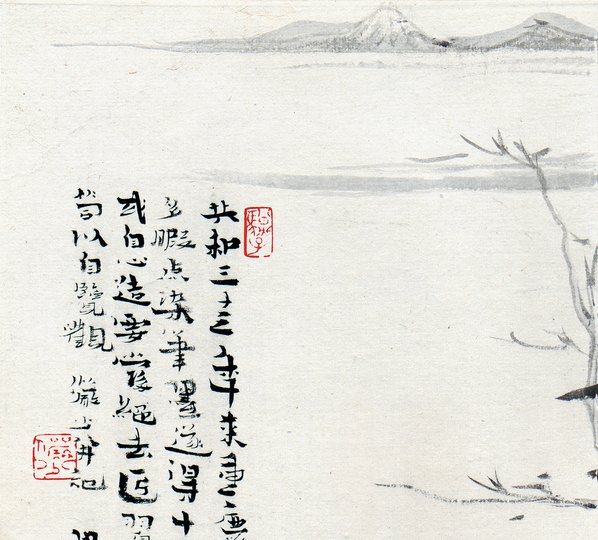 共和三十三年来重慶
多暇点染筆墨遂得十
或自心造要當絕去匠習
以自覽觀 記